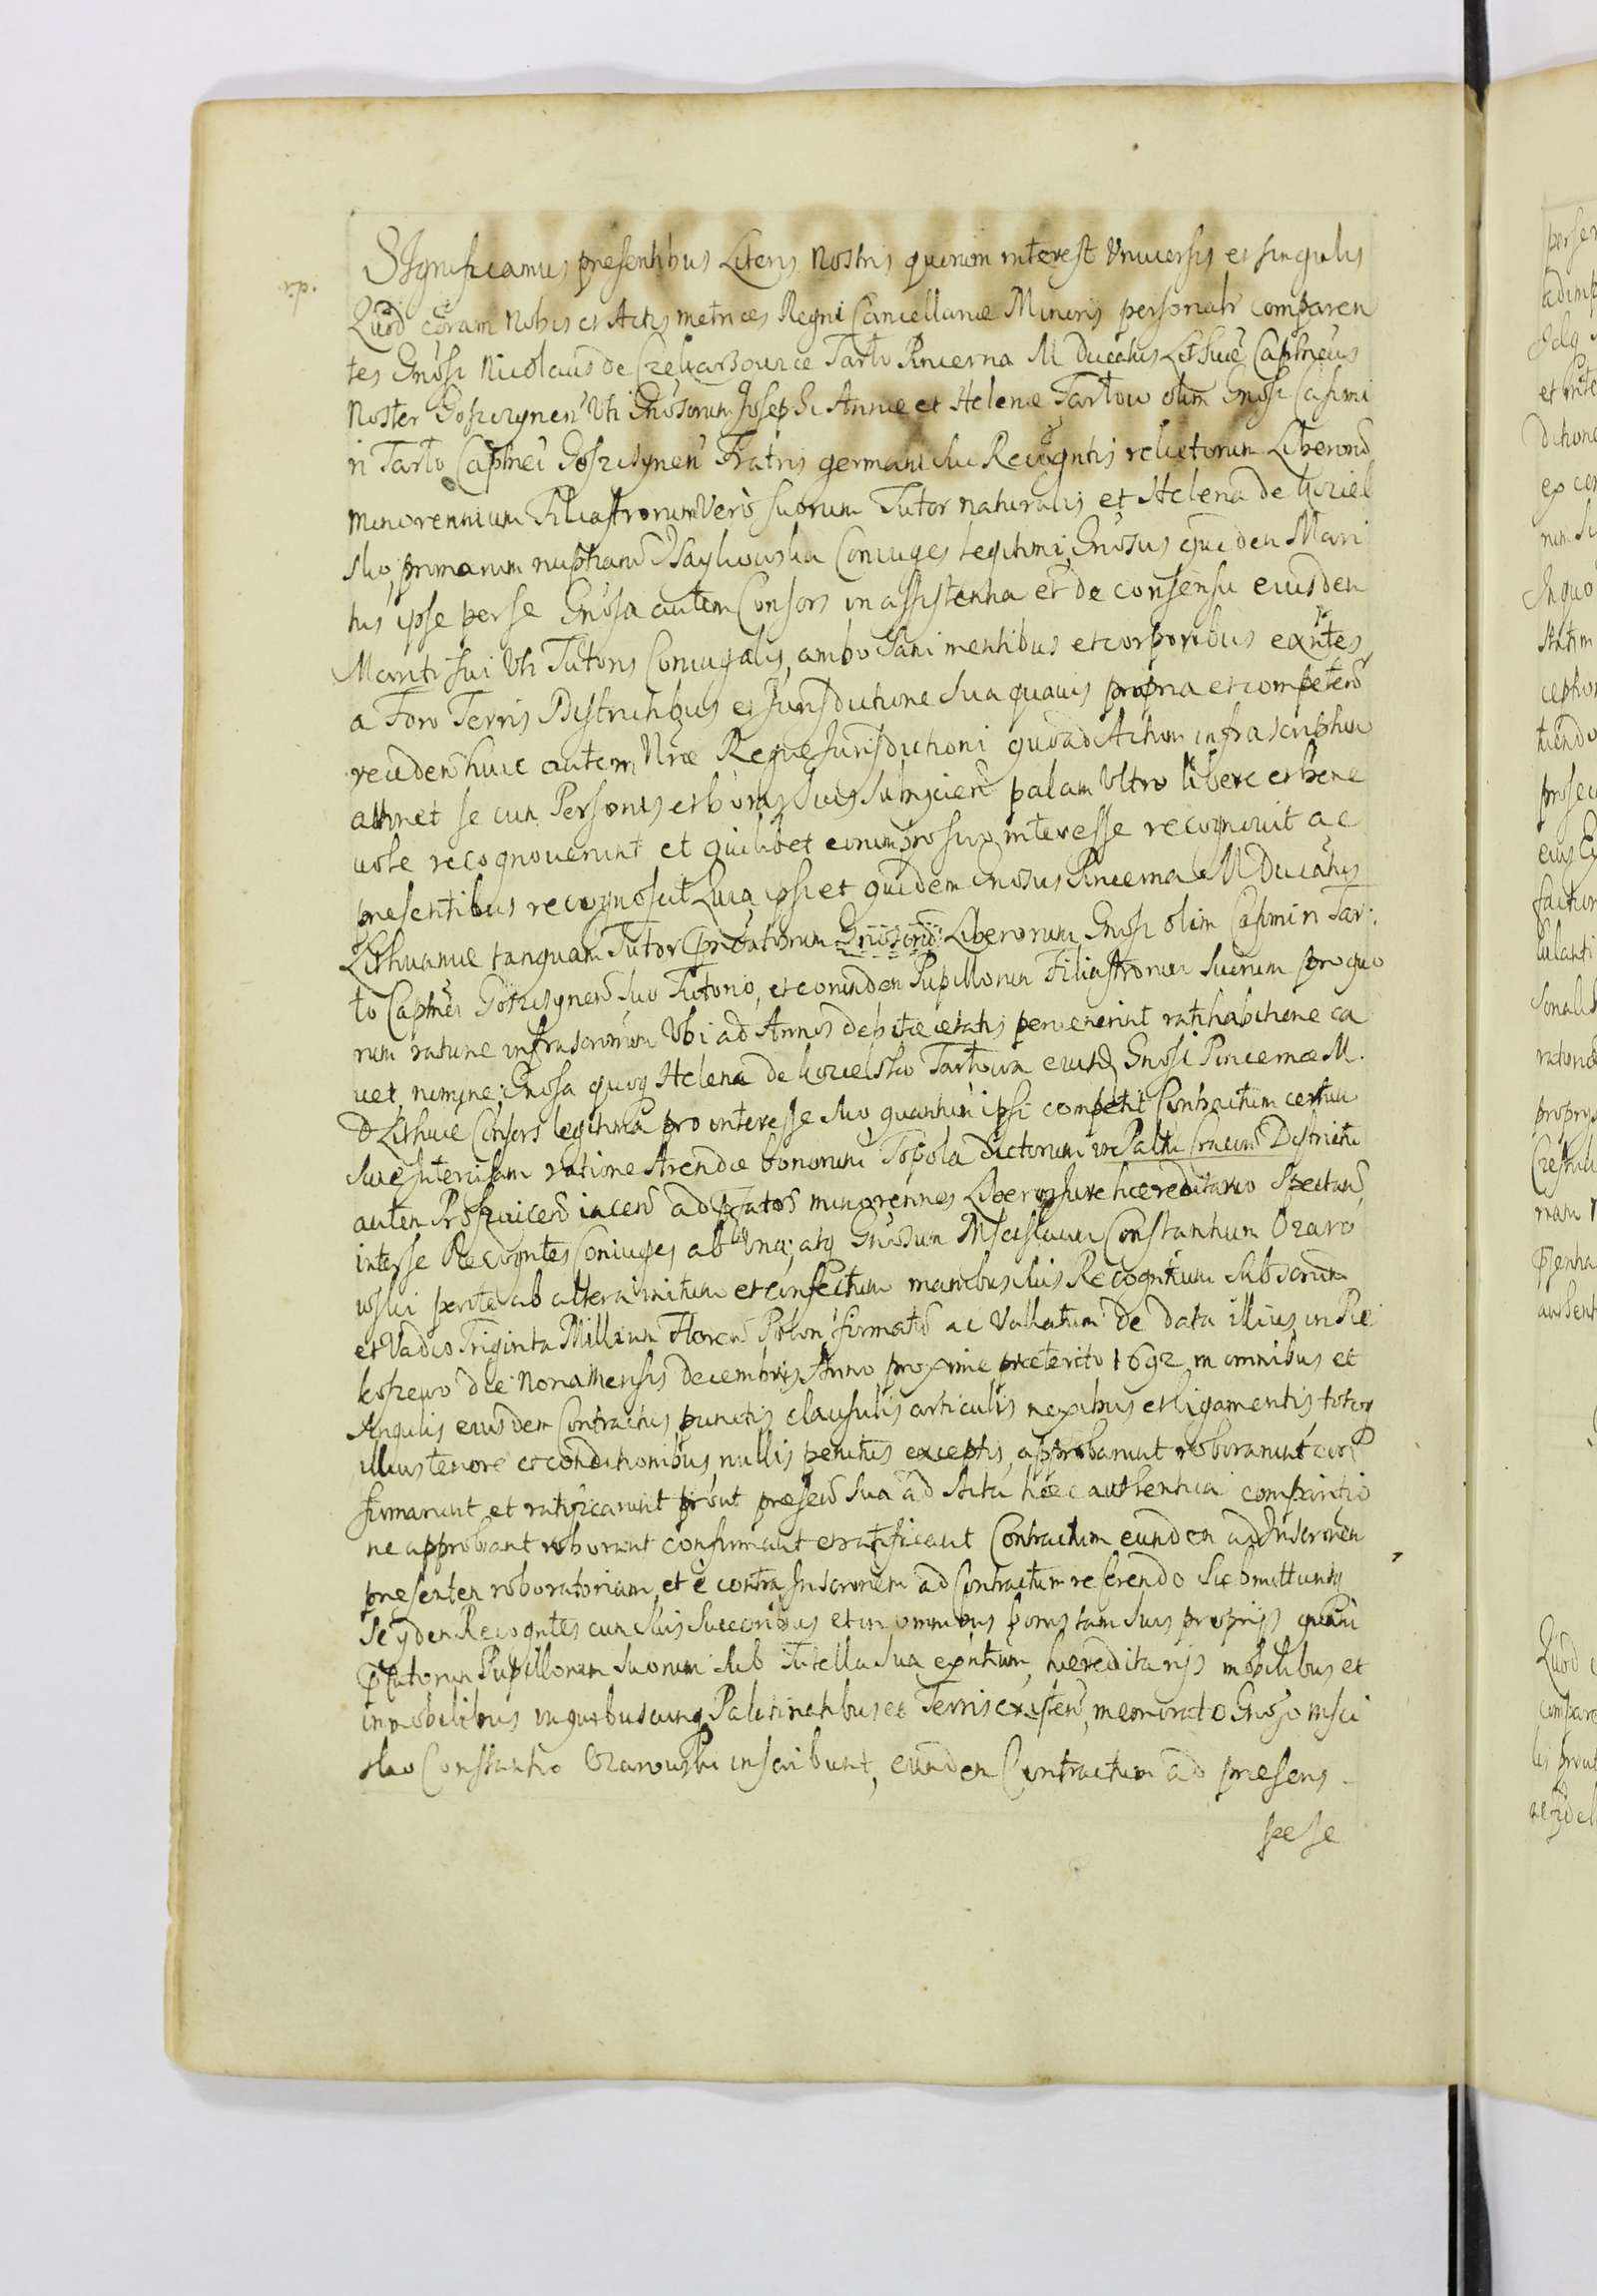 Significamus presentibus Literis Nostris quorum interest Vniversis et singulis
Quod coram Nobis et Actis metrices Regni Cancellariæ Minoris personalr comparen
tes Gnosi Nicolaus de Czekarzowice Tarlo Pincerna M Ducatus Lithuæ Capneus
Noster Goszczynen Uti Gnosorum Josephi Annæ et Helenæ Tarlow olim Gnosi Casimi
ri Tarlo Capnei Goszczynen Fratris germani sui Recogntis relictorum Liberorum
minorennium Filiastrorum Vero suorum Tutor naturalis et Helena de
sko, primarum nuptiarum Coniuges legitimi, Gnosus quidem Mari
tus ipse per se Gnosa autem Consors in assistentia et de consensu eiusdem
Mariti sui Uti Tutoris Coniugalis, ambo sani mentibus et corporibus exntes,
a Foro Terris Districtibus et Jurisdictione sua quavis propria et competen
receden huic autem Nræ Regiæ Jurisdictioni quoad Actum infrascriptum
attinet se cum Personis et bonis suis subijcien palam Ultro libere et bene
uole recognouerunt et quilibet eorum pro suo interesse recognouit ac
presentibus recognoscit Quia ipsi et quidem Gnosus Pincerna M Ducatus
Lithuaniæ tanquam Tutor prætorum Gnosorum Liberorum Gnosi olim Casimiri Tar:
to Capnei Goszczynen suo Tutorio, et eorundem Pupillorum Filiastrorum suorum pro quo
rum ratione infrascriptorum Ubi ad Annos debitæ ætatis pervenerint ratihabitione ca
uet, nomine; Gnosa quoq Helena de Tarłowa eiusd Gnosi Pincernæ M.
D Lithuæ Consors legitima pro interesse suo quantum ipsi competit Contractum certum
siue Intercisam ratione Arendæ bonorum Topola dictorum in Paltu Cracoun Districtu
autem Proszouicen iacen ad minorennes Liberos Jure hæreditario spectan
inter se Recogntes Coniuges ab Una; atq Gnosum Mscislaum Constantium Ozaro
wski parte ab altera initum et confectum manibus suis Recogntium subscriptum
et Vadio Triginta Millium Floren Polon firmatum ac Vallatum de data illius in Pie
koszewo die Nona Mensis Decembris Anno proxime præterito 1692 in omnibus et
Angulis eiusdem Contractus punctis clausulis articulis nexibus et ligamentis totoq
illius tenore et conditionibus, nullis penitus exceptis, approbarunt roborarunt con
firmarunt et ratificarunt prout præsen sua ad Acta hæc authentica comparitio
ne approbant roborant confirmant et ratificant Contractum eundem ad Inscrionem
presentem roboratoriam, et e contra Inscrionem ad Contractum referendo submittuntq
se ijdem Recogntes cum suis Succoribus et in omnibus bonis tam suis proprijs quam
Pupillorum suorum sub Tutella sua exntium, hæreditarijs mobilibus et
immobilibus in quibuscunq Palatinatibus et Terris existen, memorato Gnoso Msci
slao Constantio Ozarowski inscribunt, eundem Contractum ad præsens
sese